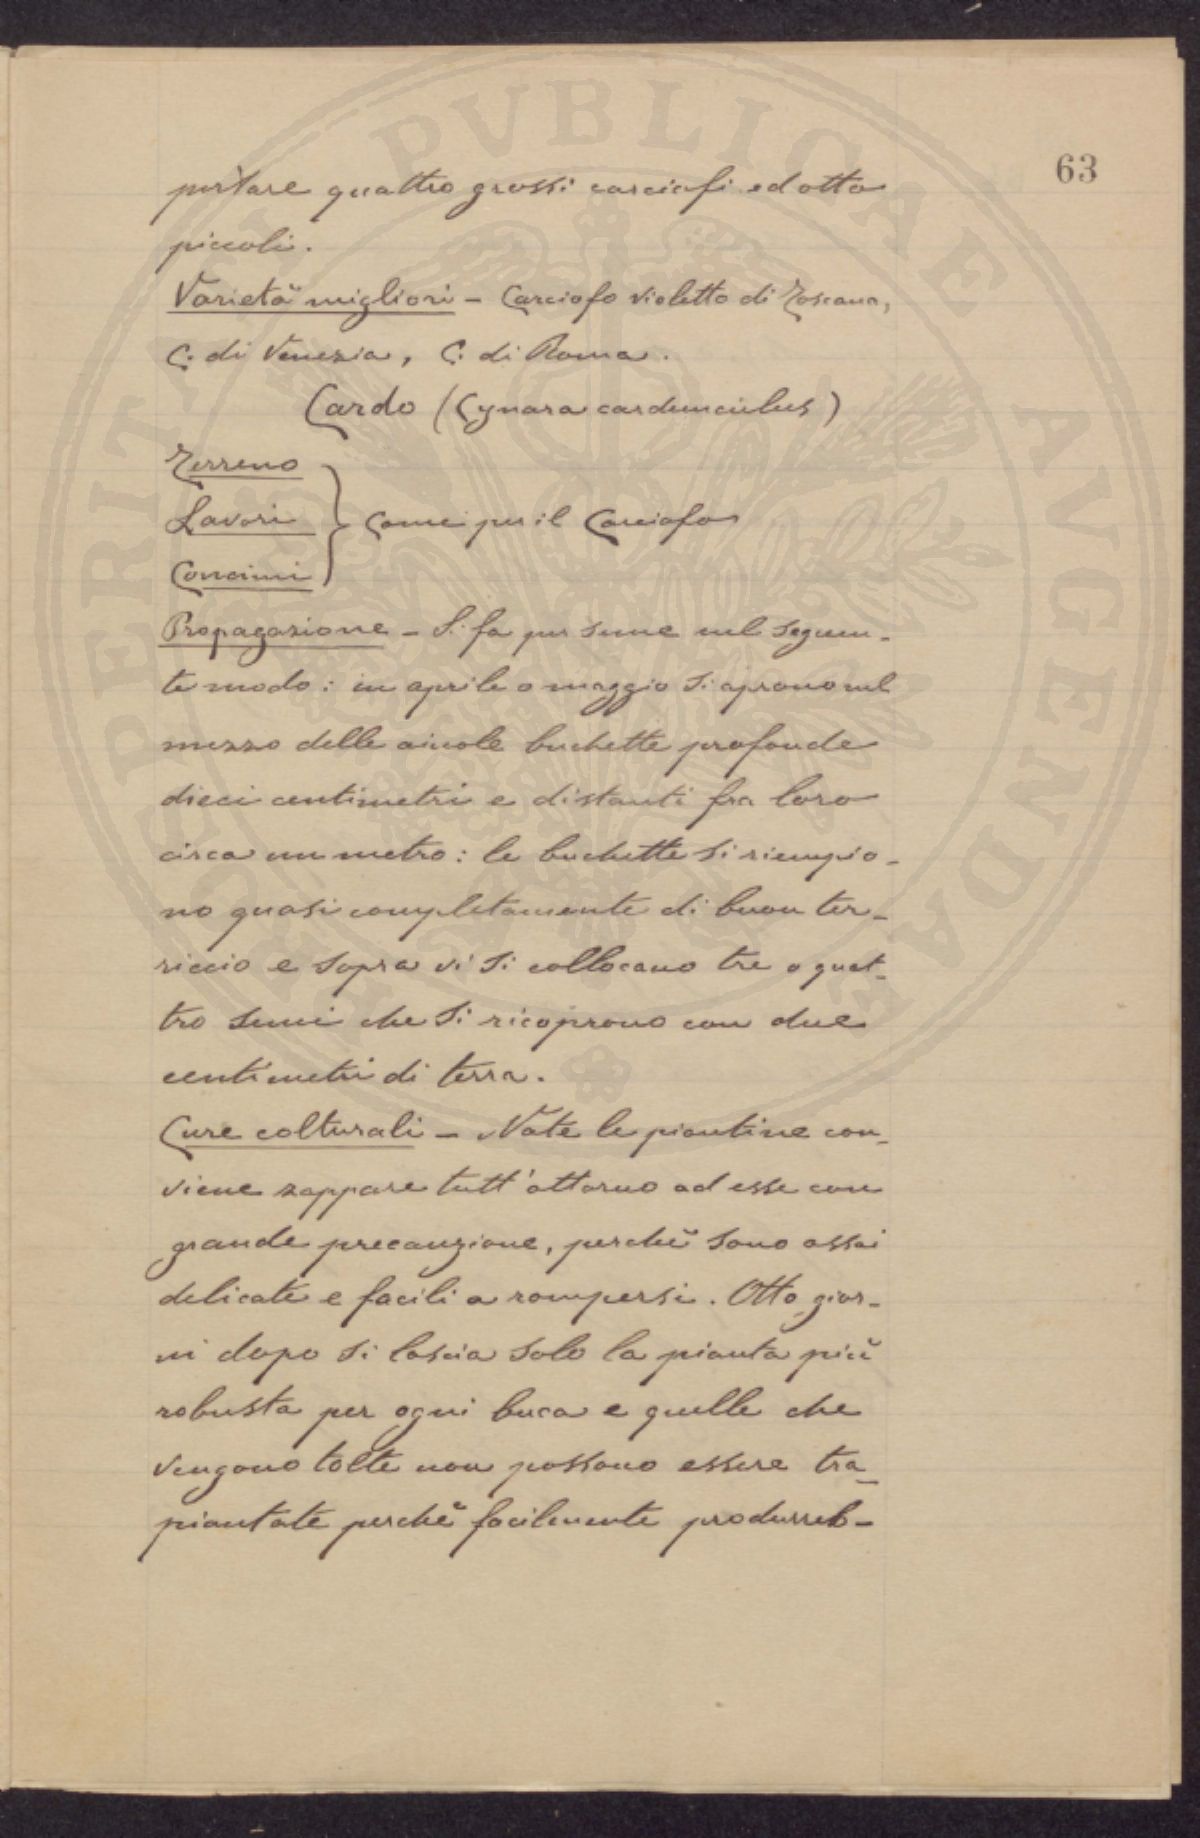 PROSPERITATI PVBLICAE AVGENDAE
63
portare quattro grossi carciofi ed otto
piccoli.
Varietà migliori - Carciofo violetto di Toscana,
C. di Venezia, C. di Roma.
Cardo (Cynara cardunculus)
Terreno
Lavori } Come per il Carciofo
Concimi
Propagazione - Si fa per seme nel seguen-
te modo: in aprile o maggio si aprono nel
mezzo delle aiuole buchette profonde
dieci centimetri e distanti fra loro
circa un metro: le buchette si riempio-
no quasi completamente di buon ter-
riccio e sopra vi si collocano tre o quat-
tro semi che si ricoprono con due
centimetri di terra.
Cure colturali - Nate le piantine con-
viene zappare tutt'attorno ad esse con
grande precauzione, perchè sono assai
delicate e facili a rompersi. Otto gior-
ni dopo si lascia solo la pianta più
robusta per ogni buca e quelle che
vengono tolte non possono essere tra-
piantate perchè facilmente produrreb-